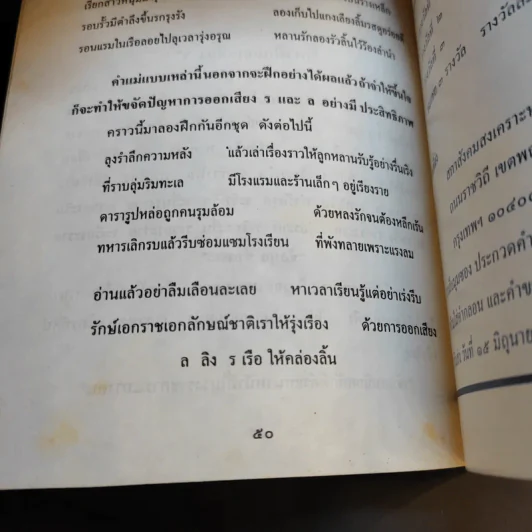 รอบรั้วมีตำลึงขึ้นรกรุงรัง ลองเก็บไปแกงเลียงลิ้มรส
รอนแรมในเรือลอยไปลุเวลารุ่งอรุณ หลานรักลองรัวลิ้นไว้ร้องลำนำ
คำแม่แบบเหล่านี้นอกจากจะฝึกอย่างได้ผลแล้ว ถ้าจำให้ขึ้นใจ
ก็จะทำให้ขจัดปัญหาการออกเสียง ร และ ล อย่างมีประสิทธิภาพ
คราวนี้มาลองฝึกกันอีกชุด ดังต่อไปนี้
ลุงรำลึกความหลัง แล้วเล่าเรื่องราวให้ลูกหลานรับรู้อย่างรื่นเริง
ที่ราบลุ่มริมทะเล มีโรงแรมและร้านเล็กๆ อยู่เรียงราย
ดารารูปหล่อถูกคนรุมล้อม ด้วยหลงรักจนต้องหลีกเร้น
ทหารเลิกรบแล้วรีบซ่อมแซมโรงเรียน ที่พังทลายเพราะแรงลม
อ่านแล้วอย่าลืมเลือนละเลย หาเวลาเรียนรู้แต่อย่าเร่งรีบ
รักษ์เอกราชเอกลักษณ์ชาติเราให้รุ่งเรือง ด้วยการออกเสียง
ล ลิง ร เรือ ให้คล่องลิ้น
๕๐
รางวัลที่ ๒
รางวัล
ถนนราชวิถี เขต
กรุงเทพฯ ๑๐๔๐๐
ประกวดคำ
คำกลอน และคำข
วันที่ ๑๕ มิถุนาย